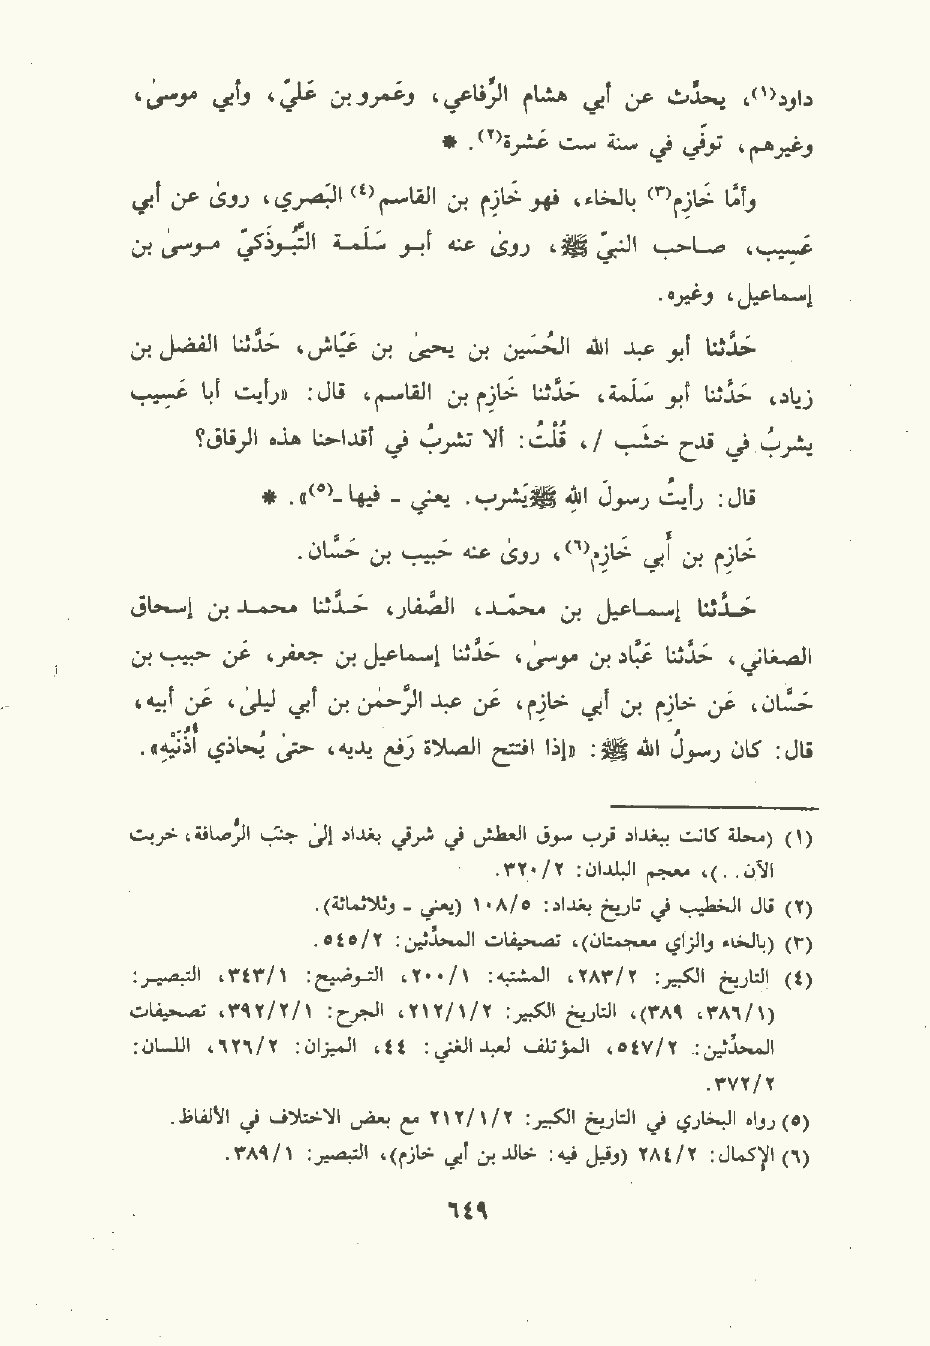 داود(١)، يحدّث عن أبي هشام الرُّفاعي، وعَمرو بن عَليّ، وأبي موسىٰ،
وغيرهم، توفّي في سنة ست عَشرة(٢). *
وأمّا خَازِم(٣) بالخاء، فهو خَازِم بن القاسم(٤) البَصري، روىٰ عن أبي
عَسِيب، صاحب النبيّ ﷺ، روىٰ عنه أبو سَلَمة التَّبُوذَكيّ موسىٰ بن
إسماعيل، وغيره.
حَدّثنا أبو عبد الله الحُسَين بن يحيىٰ بن عَيّاش، حَدّثنا الفضل بن
زياد، حَدّثنا أبو سَلَمة، حَدّثنا خَازِم بن القاسم، قال: «رأيت أبا عَسِيب
يشربُ في قدح خَشب /، قُلْتُ: ألا تشربُ في أقداحنا هذه الرقاق؟
قال: رأيتُ رسولَ اللهِ ﷺ يَشرب. يعني - فيها -(٥)». *
خَازِم بن أَبي خَازِم(٦)، روىٰ عنه حَبيب بن حَسَّان.
حَدّثنا إسماعيل بن محمّد، الصَّفار، حَدّثنا محمد بن إسحاق
الصغاني، حَدّثنا عَبَّاد بن موسىٰ، حَدّثنا إسماعيل بن جعفر، عَن حبيب بن
حَسَّان، عَن خازِم بن أبي خازِم، عَن عبد الرَّحمٰن بن أبي ليلىٰ، عَن أبيه،
قال: كان رسولُ الله ﷺ: «إذا افتتح الصلاة رَفع يديه، حتىٰ يُحاذي أُذُنَيْهِ».
(١) (محلة كانت ببغداد قرب سوق العطش في شرقي بغداد إلىٰ جنب الرُّصافة، خربت
الآن..)، معجم البلدان: ٣٢٠/٢.
(٢) قال الخطيب في تاريخ بغداد: ١٠٨/٥ (يعني - وثلاثمائة).
(٣) (بالخاء والزاي معجمتان)، تصحيفات المحدّثين: ٥٤٥/٢.
(٤) التاريخ الكبير: ٢٨٣/٢، المشتبه: ٢٠٠/١، التوضيح: ٣٤٣/١، التبصير:
(٣٨٦/١، ٣٨٩)، التاريخ الكبير: ٢١٢/١/٢، الجرح: ٣٩٢/٢/١، تصحيفات
المحدّثين: ٥٤٧/٢، المؤتلف لعبد الغني: ٤٤، الميزان: ٦٢٦/٢، اللسان:
٣٧٢/٢.
(٥) رواه البخاري في التاريخ الكبير: ٢١٢/١/٢ مع بعض الاختلاف في الألفاظ.
(٦) الإكمال: ٢٨٤/٢ (وقيل فيه: خالد بن أبي خازم)، التبصير: ٣٨٩/١.
٦٤٩